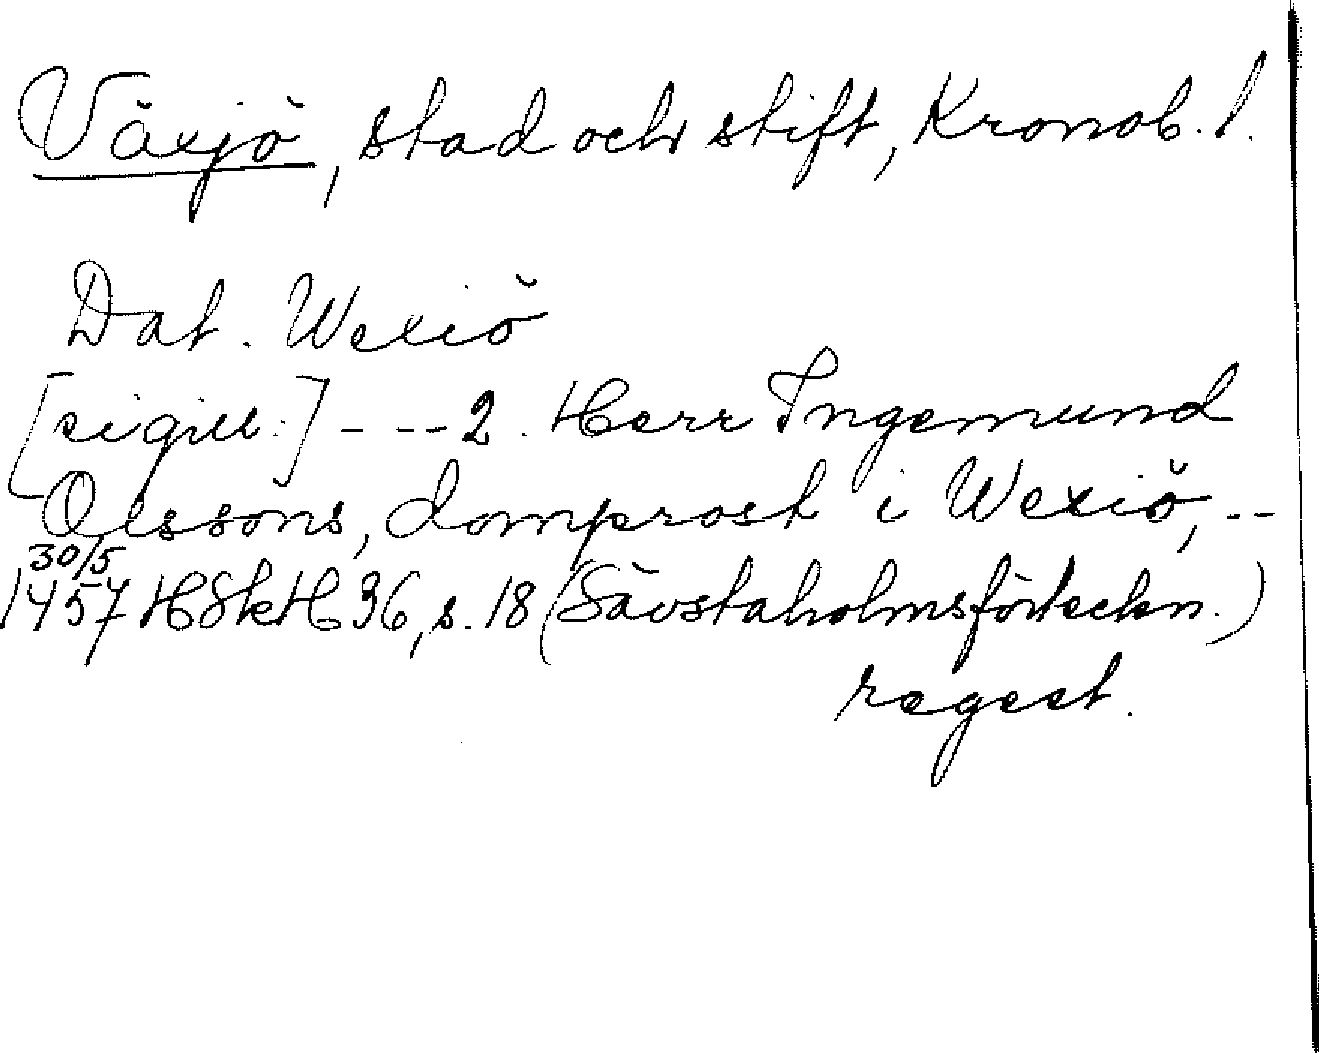 Växjö, stad och stift, Kronob. l.
Dat. Wexiö
[sigill:] - - - 2. Herr Ingemund
Olssöns, domprost i Wexiö, - -
30/5
1457 HSkH 36, s. 18 (Sävstaholmsförteckn.)
regest.